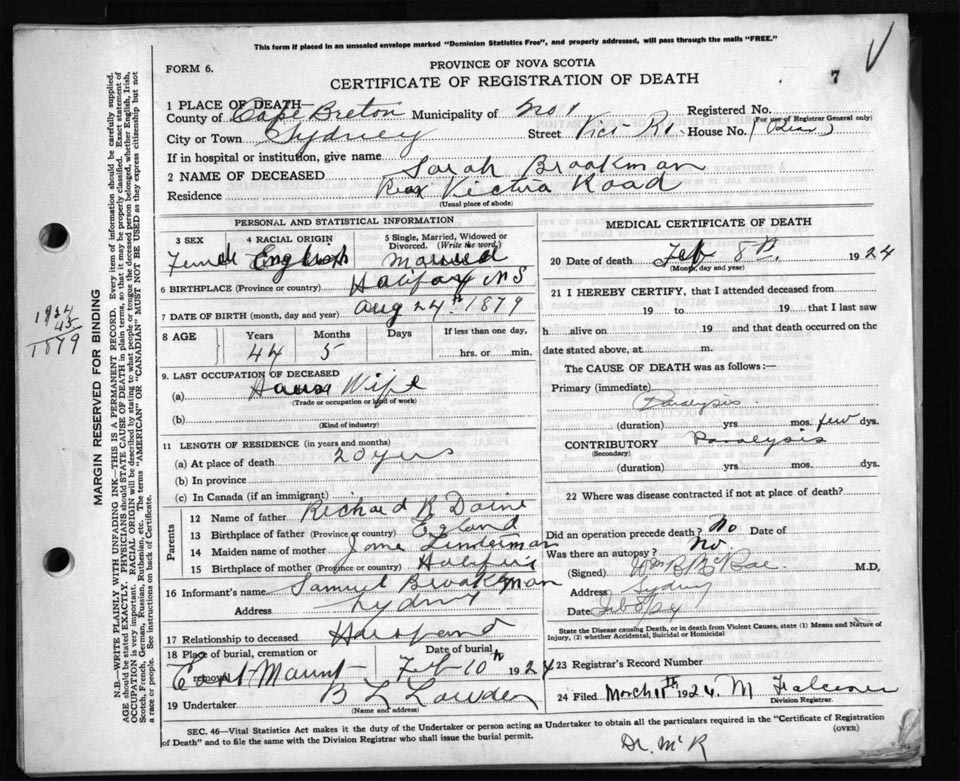 This form if placed in an unsealed envelope marked "Dominion Statistics Free", and properly addressed, will pass through the mails "FREE."
FORM 6.
PROVINCE OF NOVA SCOTIA
CERTIFICATE OF REGISTRATION OF DEATH
7
1 PLACE OF DEATH—
County of Cape Breton Municipality of No 1 Registered No.
(For use of Registrar General only)
City or Town Sydney Street Vict Rd. House No. (Rear)
If in hospital or institution, give name
2 NAME OF DECEASED Sarah Braakman
Residence Rear Victria Road
(Usual place of abode)
PERSONAL AND STATISTICAL INFORMATION
3 SEX 4 RACIAL ORIGIN 5 Single, Married, Widowed or Divorced. (Write the word)
Female English Married
6 BIRTHPLACE (Province or country) Halifax NS
7 DATE OF BIRTH (month, day and year) Aug 24th 1879
8 AGE Years Months Days If less than one day,
44 5 hrs. or min.
9. LAST OCCUPATION OF DECEASED
(a) House Wife
(Trade or occupation or kind of work)
(b)
(Kind of industry)
11 LENGTH OF RESIDENCE (in years and months)
(a) At place of death 20 yrs
(b) In province
(c) In Canada (if an immigrant)
Parents
12 Name of father Richard R Daine
13 Birthplace of father (Province or country) Egland
14 Maiden name of mother Jane Linderman
15 Birthplace of mother (Province or country) Halifax
16 Informant's name Samuel Braakman
Address Sydney
17 Relationship to deceased Husband
18 Place of burial, cremation or removal Date of burial
East Mount Feb 10th 1924
19 Undertaker B L Lowden
(Name and address)
MEDICAL CERTIFICATE OF DEATH
20 Date of death Feb 8th. 1924
(Month, day and year)
21 I HEREBY CERTIFY, that I attended deceased from
19 to 19 that I last saw
h alive on 19 and that death occurred on the
date stated above, at m.
The CAUSE OF DEATH was as follows:—
Primary (immediate)
Paralysis
(duration) yrs. mos. few dys.
CONTRIBUTORY Paralysis
(Secondary)
(duration) yrs. mos. dys.
22 Where was disease contracted if not at place of death?
Did an operation precede death? No Date of
Was there an autopsy? No.
(Signed) Wm B McRae. M.D,
Address Sydney
Date Feb 8/24
State the Disease causing Death, or in death from Violent Causes, state (1) Means and Nature of Injury, (2) whether Accidental, Suicidal or Homicidal
23 Registrar's Record Number
24 Filed March 11th 1924. M Falconer
Division Registrar.
SEC. 46—Vital Statistics Act makes it the duty of the Undertaker or person acting as Undertaker to obtain all the particulars required in the "Certificate of Registration
of Death" and to file the same with the Division Registrar who shall issue the burial permit. (OVER)
Dr. McR
1924
45
1879
MARGIN RESERVED FOR BINDING
N.B.—WRITE PLAINLY WITH UNFADING INK—THIS IS A PERMANENT RECORD. Every item of information should be carefully supplied.
AGE should be stated EXACTLY. PHYSICIANS should STATE CAUSE OF DEATH in plain terms, so that it may be properly classified. Exact statement of
OCCUPATION is very important. RACIAL ORIGIN will be described by stating to what people or tongue the deceased person belonged, whether English, Irish,
Scotch, French, German, Russian, Ruthenian, etc. The terms "AMERICAN" or "CANADIAN" MUST NOT BE USED as they express citizenship but not
a race or people. See instructions on back of Certificate.